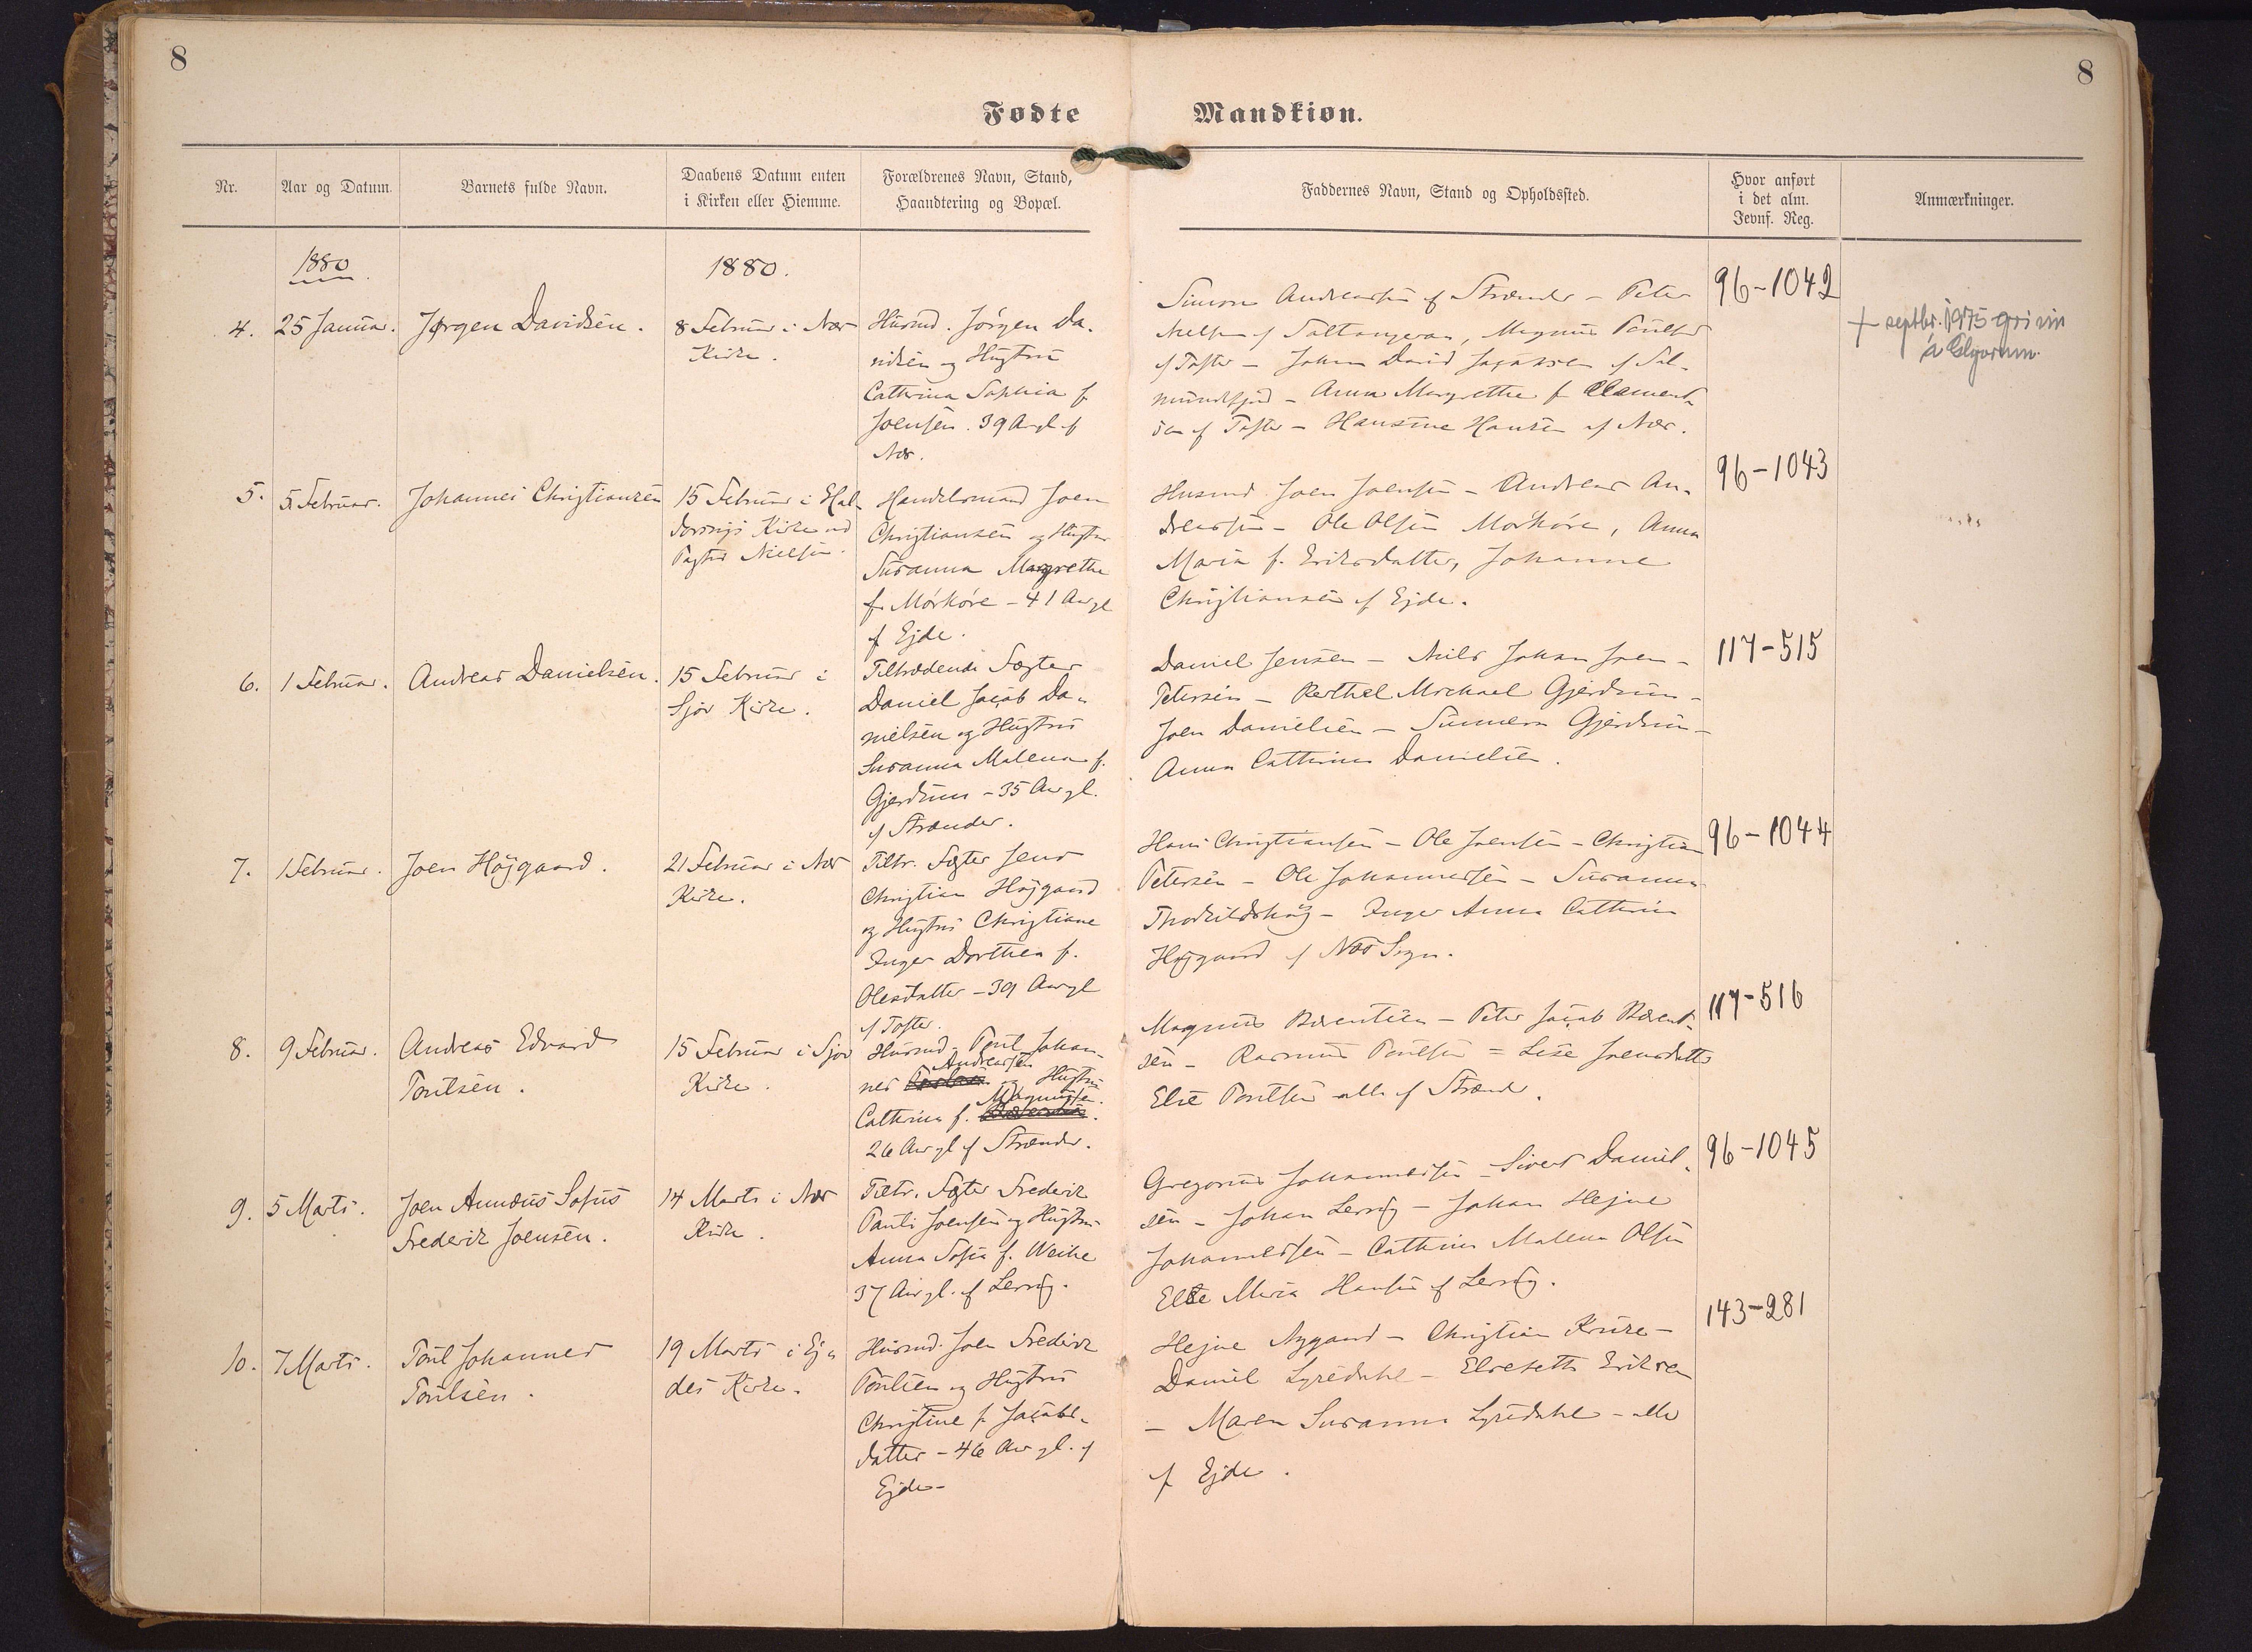 8
8
Fødte
Mandkiøn.
Nr.
Aar og Datum.
Barnets fulde Navn.
Daabens Datum enten
i Kirken eller Hiemme.
Forældrenes Navn, Stand,
Haandtering og Bopæl.
Faddernes Navn, Stand og Opholdssted.
Hvor anført
i det alm.
Jevnf. Reg.
Anmærkninger.
1880.
1880.
4.
25 Januar.
Jørgen Davidsen.
8 Februar i Næs
Kirke.
Husmd. Jörgen Da-
vidsen og Hustru
Cathrina Sophia f.
Joensen. 39 Aar gl. af
Næs.
Simon Andreasen af Strænder - Peter
Nielsen af Saltangeraa, Magnus Poulsen
af Tofte - Johan David Jacobsen af Sal-
mundefjord - Anna Margrethe f. Clement-
sen af Tofte - Hansine Hansen af Næs.
96-1042
+ septbr. 1975
á Glyvrum.
5.
5 Februar.
Johannes Christiansen
15 Februar i Hal-
dorsvigs Kirke ved
Pastor Nielsen.
Handelsmand Joen
Christiansen og Hustru
Susanna Margrethe
f. Mörköre - 41 Aar gl.
af Ejde.
Husmd. Joen Joensen - Andreas An-
dreasen - Ole Olsen Mörköre, Anna
Maria f. Eriksdatter, Johanne
Christiansen af Ejde.
96-1043
6.
1 Februar.
Andreas Danielsen.
15 Februar i
Sjov Kirke.
Tiltrædende Fæster
Daniel Jacob Da-
nielsen og Hustru
Susanna Malena f.
Gjerdum - 35 Aar gl.
af Strænder.
Daniel Jensen - Niels Johan Joen-
Petersen - Berthel Michael Gjerdum -
Joen Danielsen - Sunneva Gjerdum -
Anna Cathrine Danielsen.
117-515
7.
1 Februar.
Joen Höjgaard.
21 Februar i Næs
Kirke.
Tiltr. Fæster Jens
Christian Höjgaard
og Hustru Christiane
Inger Dorthea f.
Olesdatter - 39 Aar gl.
af Tofte.
Hans Christiansen - Ole Joensen - Christian
Petersen - Ole Johannesen - Susanna
Thorkildshöj - Inger Anna Cathrine
Höjgaard af Næs Sogn.
96-1044
8.
9 Februar.
Andreas Edvard
Poulsen.
15 Februar i Sjov
Kirke.
Husmd. Poul Johan-
nes Andreasen og Hustru
Cathrina f. Magnussen.
26 Aar gl. af Strænder.
Magnus Berentsen - Peter Jacob Berent-
sen - Rasmus Poulsen = Lise Joensdatter
Else Poulsen alle af Strænd.
117-516
9.
5 Marts.
Joen Amodus Sofus
Frederik Joensen.
14 Marts i Næs
Kirke.
Tiltr. Fæster Frederik
Pauli Joensen og Hustru
Anna Sofia f. Weihe
37 Aar gl. af Lervig.
Gregorius Johannessen - Sivert Daniel-
sen - Johan Lervig - Johan Hejne
Johannessen - Cathrine Malena Olsen
Else Maria Hansen af Lervig.
96-1045
10.
7 Marts.
Poul Johannes
Poulsen.
19 Marts i Ej-
des Kirke.
Husmd. Joen Frederik
Poulsen og Hustru
Christine f. Jacobs-
datter - 46 Aar gl. af
Ejde -
Hejne Nygaard - Christian Kruse -
Daniel Lyredahl - Elsebeth Eriksen
- Maren Susanna Lyredahl - alle
af Ejde.
143-281